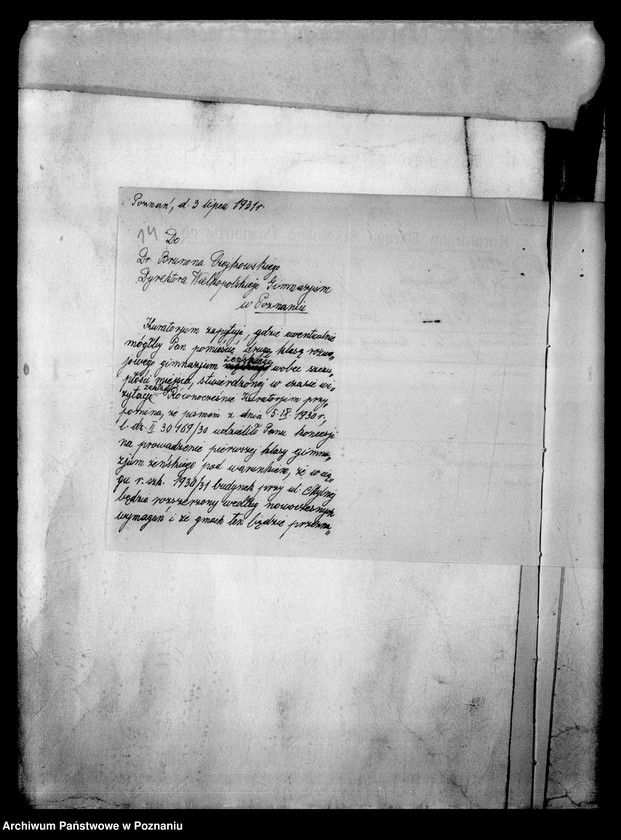 Poznań, d. 3 lipca 1931 r.
14 Do
Dr. Brunona Czajkowskiego
Dyrektora Wielkopolskiego Gimnazjum
w Poznaniu
Kuratorjum zapytuje, gdzie ewentualnie
mógłby Pan pomieścić drugą klasę rozwo„
jowego gimnazjum żeńskiego wobec szczu„
płości miejsca, stwierdzonej w czasie wi„
zytacji. Równocześnie Kuratorjum przy„
pomina, że pismem z dnia 5. IX. 1930 r,
l. dz. II 30169/30 udzieliło Panu koncesji
na prowadzenie pierwszej klasy gimna„
zjum żeńskiego pod warunkiem, że w cią„
gu r. szk. 1930/31 budynek przy ul.
będzie rozszerzony według nowoczesnych
wymagań i że gmach ten będzie przezna„
Archiwum Państwowe w Poznaniu